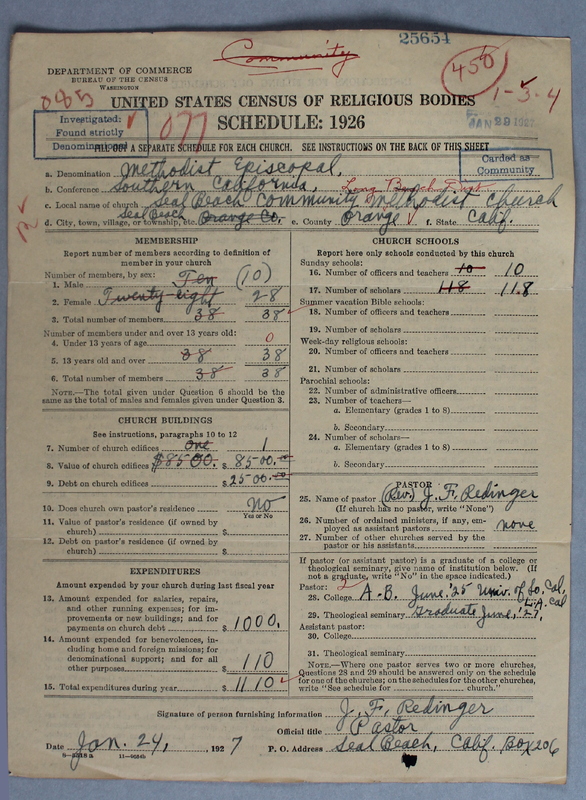 Community
25654
DEPARTMENT OF COMMERCE
BUREAU OF THE CENSUS
WASHINGTON
450
1-3-4
085
UNITED STATES CENSUS OF RELIGIOUS BODIES
Investigated:
Found strictly
Denominational
077
SCHEDULE: 1926
JAN 29 1927
FILL OUT A SEPARATE SCHEDULE FOR EACH CHURCH. SEE INSTRUCTIONS ON THE BACK OF THIS SHEET
Carded as
Community
a. Denomination Methodist Episcopal,
b. Conference Southern California, Long Beach Dist
c. Local name of church Seal Beach Community Methodist Church
d. City, town, village, or township, etc. Seal Beach Orange Co. e. County Orange f. State Calif.
MEMBERSHIP
Report number of members according to definition of
member in your church
Number of members, by sex:
1. Male Ten (10)
2. Female Twenty-eight 28
3. Total number of members 38 38
Number of members under and over 13 years old:
4. Under 13 years of age 0
5. 13 years old and over 38 38
6. Total number of members 38 38
NOTE.—The total given under Question 6 should be the
same as the total of males and females given under Question 3.
CHURCH BUILDINGS
See instructions, paragraphs 10 to 12
7. Number of church edifices One 1
8. Value of church edifices $8500. $ 8500.00
9. Debt on church edifices $ 2500.00
10. Does church own pastor's residence No
Yes or No
11. Value of pastor's residence (if owned by
church) $
12. Debt on pastor's residence (if owned by
church) $
EXPENDITURES
Amount expended by your church during last fiscal year
13. Amount expended for salaries, repairs,
and other running expenses; for im-
provements or new buildings; and for
payments on church debt $ 1000.
14. Amount expended for benevolences, in-
cluding home and foreign missions; for
denominational support; and for all
other purposes $ 110
15. Total expenditures during year $ 1110
CHURCH SCHOOLS
Report here only schools conducted by this church
Sunday schools:
16. Number of officers and teachers 10 10
17. Number of scholars 118 118
Summer vacation Bible schools:
18. Number of officers and teachers
19. Number of scholars
Week-day religious schools:
20. Number of officers and teachers
21. Number of scholars
Parochial schools:
22. Number of administrative officers
23. Number of teachers—
a. Elementary (grades 1 to 8)
b. Secondary
24. Number of scholars—
a. Elementary (grades 1 to 8)
b. Secondary
PASTOR
25. Name of pastor (Rev.) J. F. Redinger
(If church has no pastor, write "None")
26. Number of ordained ministers, if any, em-
ployed as assistant pastors none
27. Number of other churches served by the
pastor or his assistants
If pastor (or assistant pastor) is a graduate of a college or
theological seminary, give name of institution below. (If
not a graduate, write "No" in the space indicated.)
Pastor:
28. College A.B. June '25 Univ. of So. Cal.
L.A. Cal
29. Theological seminary Graduate June, '27,
Assistant pastor:
30. College
31. Theological seminary
NOTE.—Where one pastor serves two or more churches,
Questions 28 and 29 should be answered only on the schedule
for one of the churches; on the schedules for the other churches,
write "See schedule for church."
Signature of person furnishing information J. F. Redinger
Official title Pastor
Date Jan. 24, 1927 P. O. Address Seal Beach, Calif. Box 206